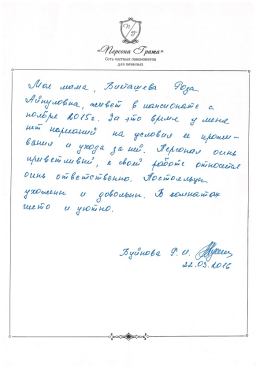 «Персона Грата»
Сеть частных пансионатов
для пожилых
Моя мама, Роза
Айнуловна, живет в пансионате с
ноября 2015г. За это время у меня
нет нареканий на условия ее прожи-
вания и ухода за ней. Персонал очень
приветливый, к своей работе относится
очень ответственно. Постояльцы
ухожены и довольны. В комнатах
чисто и уютно.
Буйнова Р. И.
22.03.2016